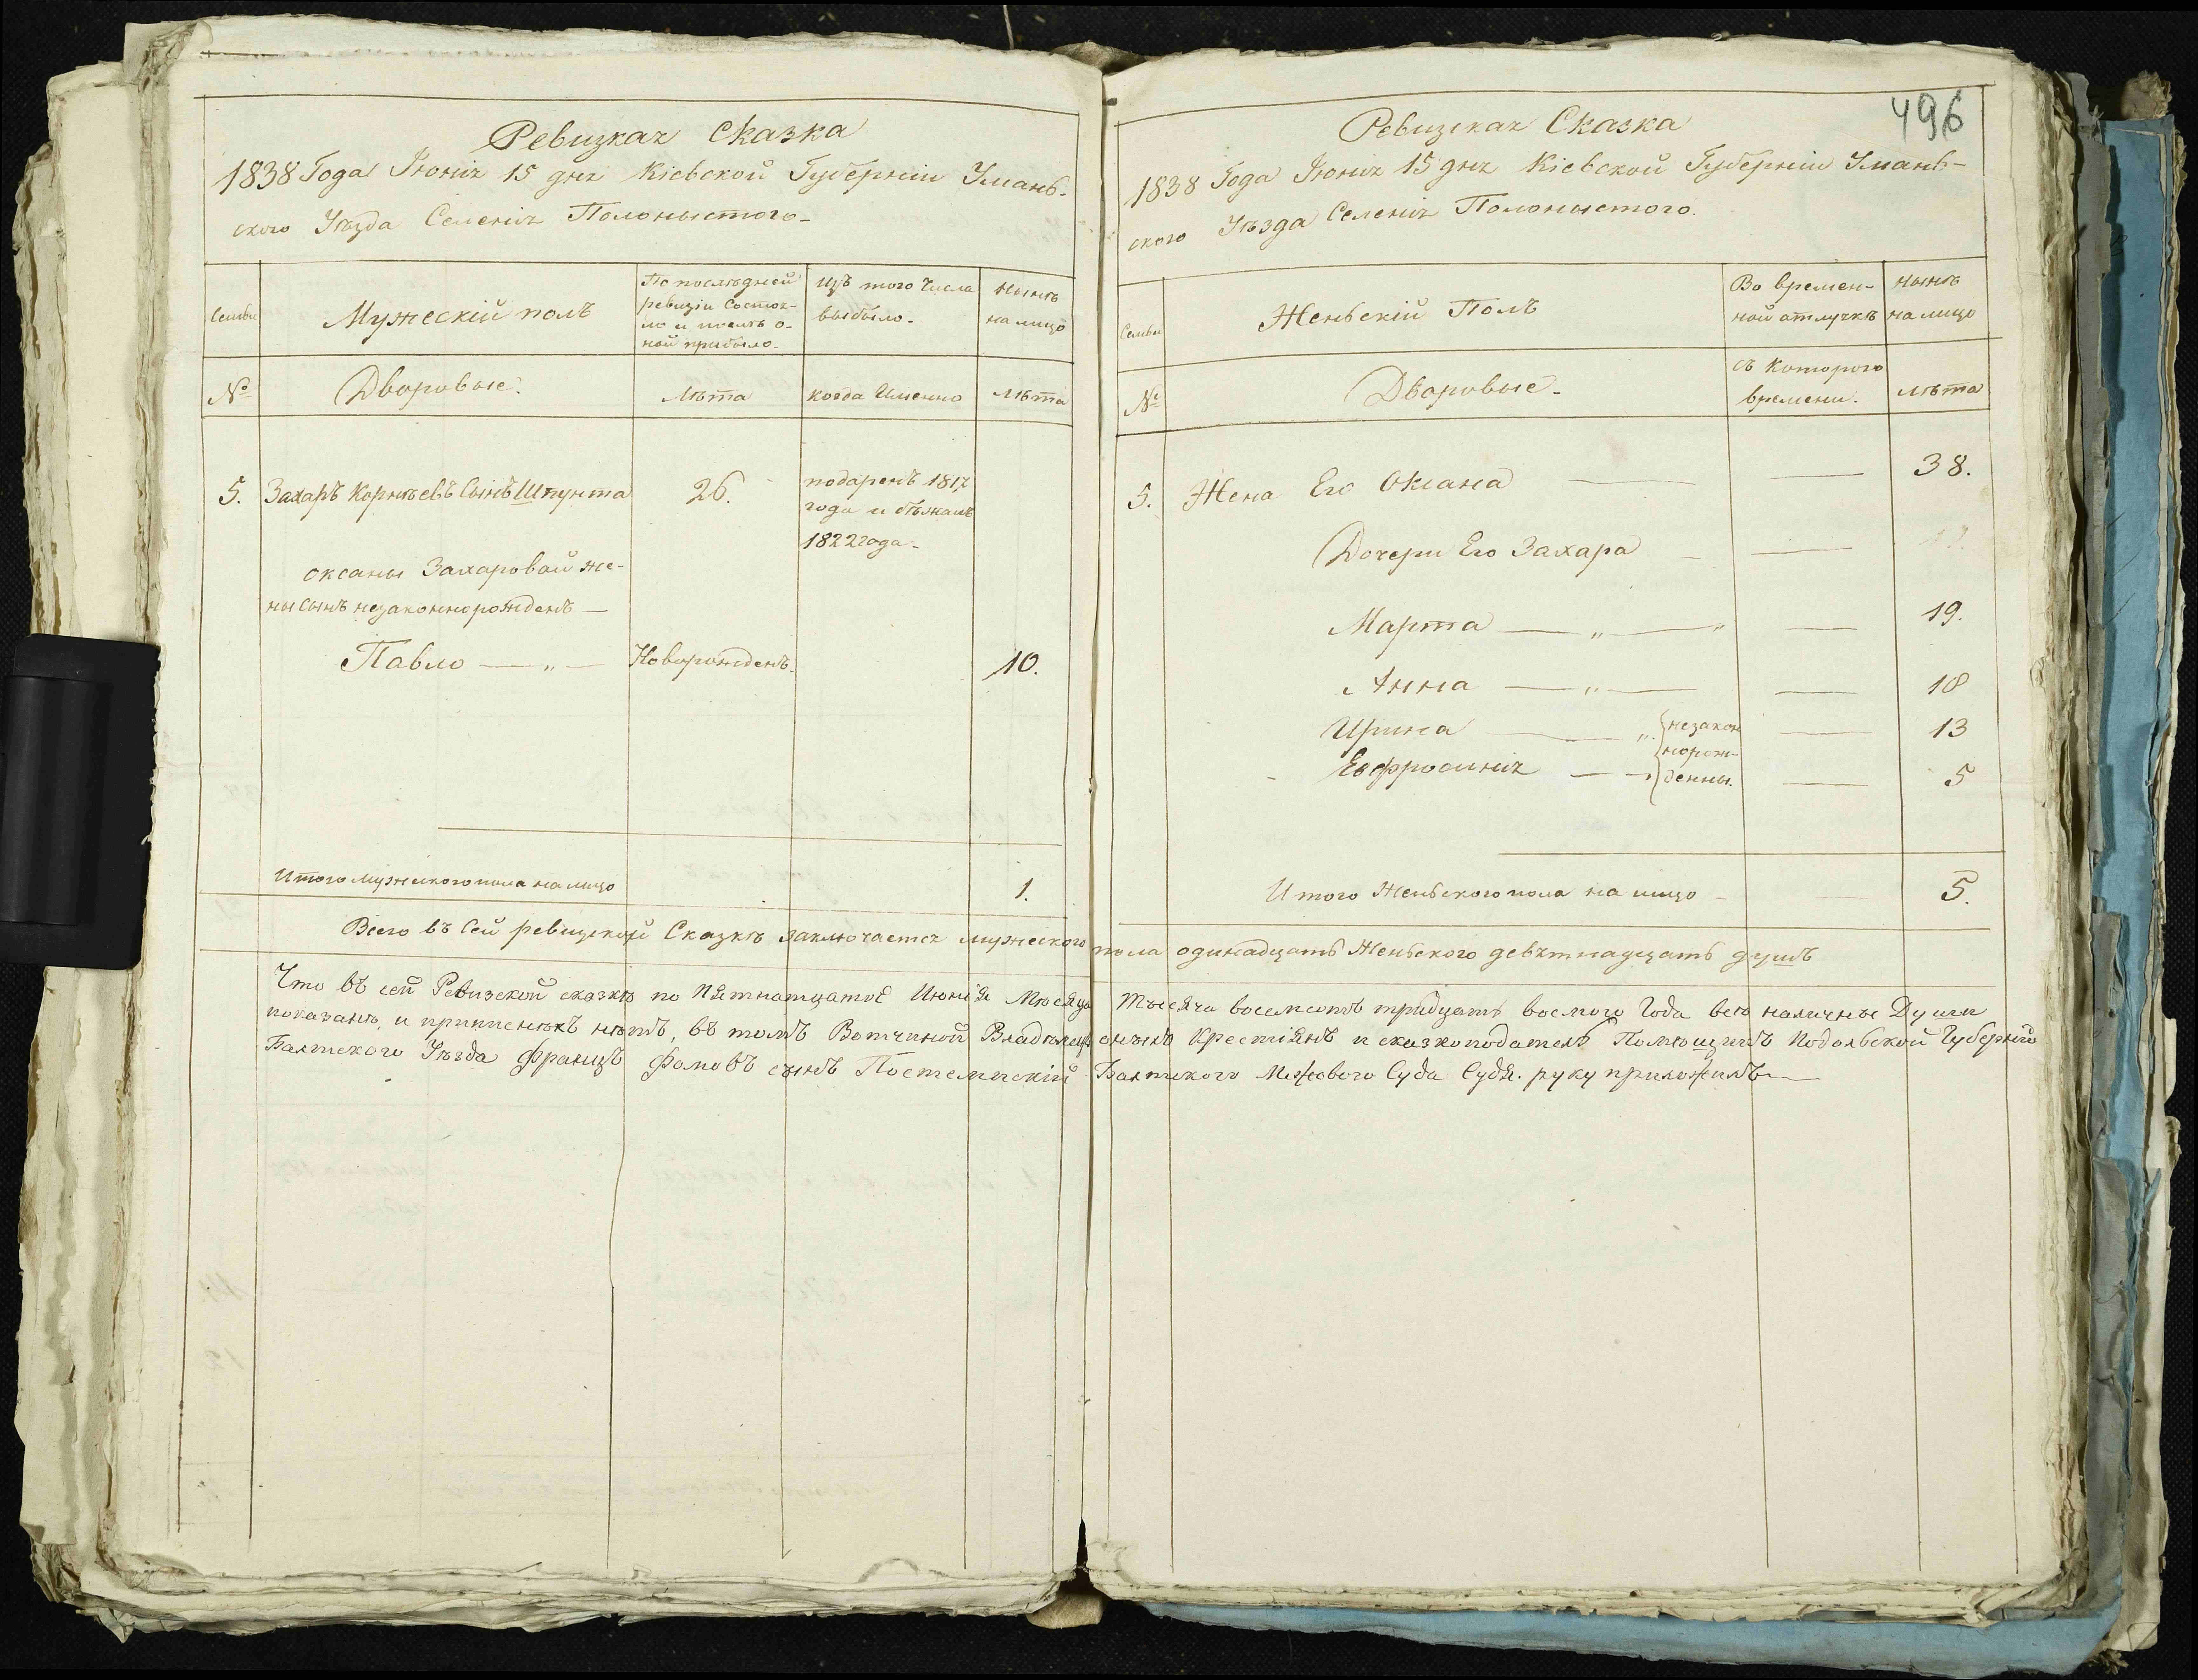 Ревизкая Сказка
1838 Года Июния 15 дня Кіевской Губерніи Умань-
ского Уѣзда Селенія Полоныстого-
Семьи
Мужескій полъ
По послѣдней
ревизіи Состоя-
ло и послѣ о-
ной прибыло.
Изъ того Числа
выбыло.
Нынѣ
на лицо
№
Дворовые.
Лѣта
когда Именно
Лѣта
5. Захаръ Корнѣевъ Сынъ Шпунта 26. подаренъ 1817
года и бѣжалъ
1822 года.
оксаны Захаровой же-
ны сынъ незаконнорожденъ —
Павло — „ — Новорожденъ. 10.
Итого мужеского пола на лицо 1.
496
Ревизская Сказка
1838 Года Июния 15 дня Кіевской Губерніи Умань-
ского Уѣзда Селенія Полоныстого.
Семьи
Женьскій Полъ
Во времен-
ной отлучкѣ
нынѣ
на лицо
№
Дворовые.
съ Которого
времени.
лѣта
5. Жена Его Оксана — — 38.
Дочери Его Захара — —
Марта — „ — „ — 19.
Анна — „ — — 18
Ирина — „ незакон — 13
норож-
Евфросинія — — денны. — 5
Итого Женьского пола на лицо — — 5.
Всего въ Сей ревизской Сказкѣ заключается мужеского пола одинадцать Женьского девятнадцать душъ
Что въ сей Ревизской сказкѣ по Пятнатцатоѣ Июнія Мѣсяца тысяча восемсотъ тридцать восмого Года всѣ наличныѣ Души
показанѣ, и прописныхъ нѣтъ, въ томъ Вотчиной Владѣлецъ онѣхъ Крестіянъ и сказкоподатель Помѣщикъ Подольской Губерніѣ
Балтского Уѣзда Францъ Фомовъ сынъ Постемпскій Балтского Межового Суда Судя. руку приложилъ —